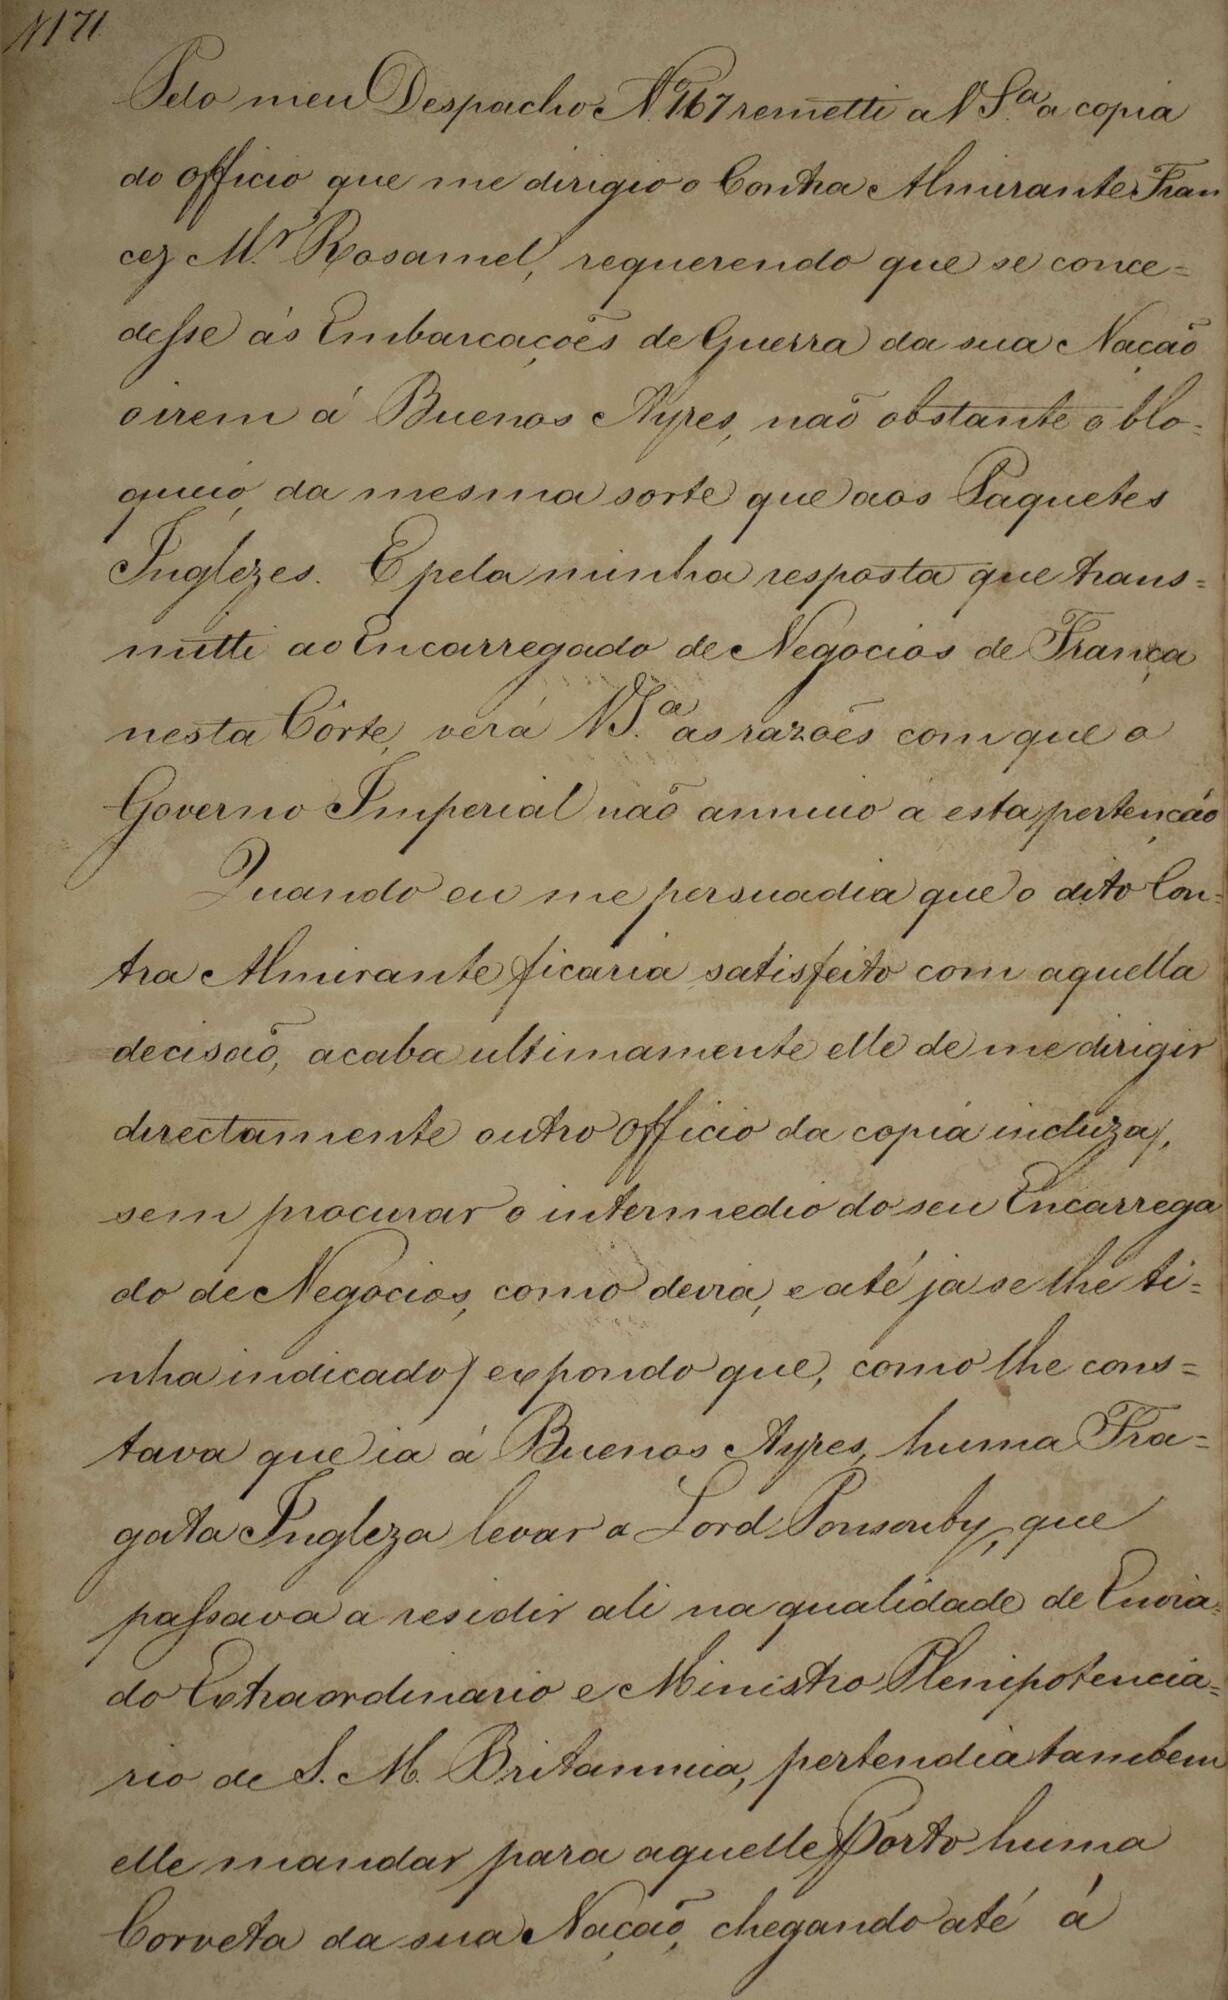 N 171
Pelo meu Despacho N.º 167 remetti a V S.ª a copia
do officio que me dirigio o Contra Almirante Fran
cez M.r Rosamel, requerendo que se conce=
desse ás Embarcações de Guerra da sua Nação
o irem á Buenos Ayres, não obstante o blo=
queio, da mesma sorte que aos Paquetes
Inglezes. E pela minha resposta que trans=
mitti ao Encarregado de Negocios de França
nesta Côrte, verá V S.ª as razões com que o
Governo Imperial não annuio a esta pertenção
Quando eu me persuadia que o dito Con=
tra Almirante ficaria satisfeito com aquella
decisão, acaba ultimamente elle de me dirigir
directamente outro officio da copia incluza,
sem procurar o intermedio do seu Encarrega
do de Negocios, como devia, e até ja se lhe ti=
nha indicado) expondo que, como lhe cons=
tava que ia á Buenos Ayres, huma Fra=
gata Ingleza levar a Lord Ponsonby, que
passava a residir ali na qualidade de Envia=
do Extraordinario e Ministro Plenipotencia=
rio de S. M. Britannica, pertendia tambem
elle mandar para aquelle Porto huma
Corveta da sua Nação, chegando até á